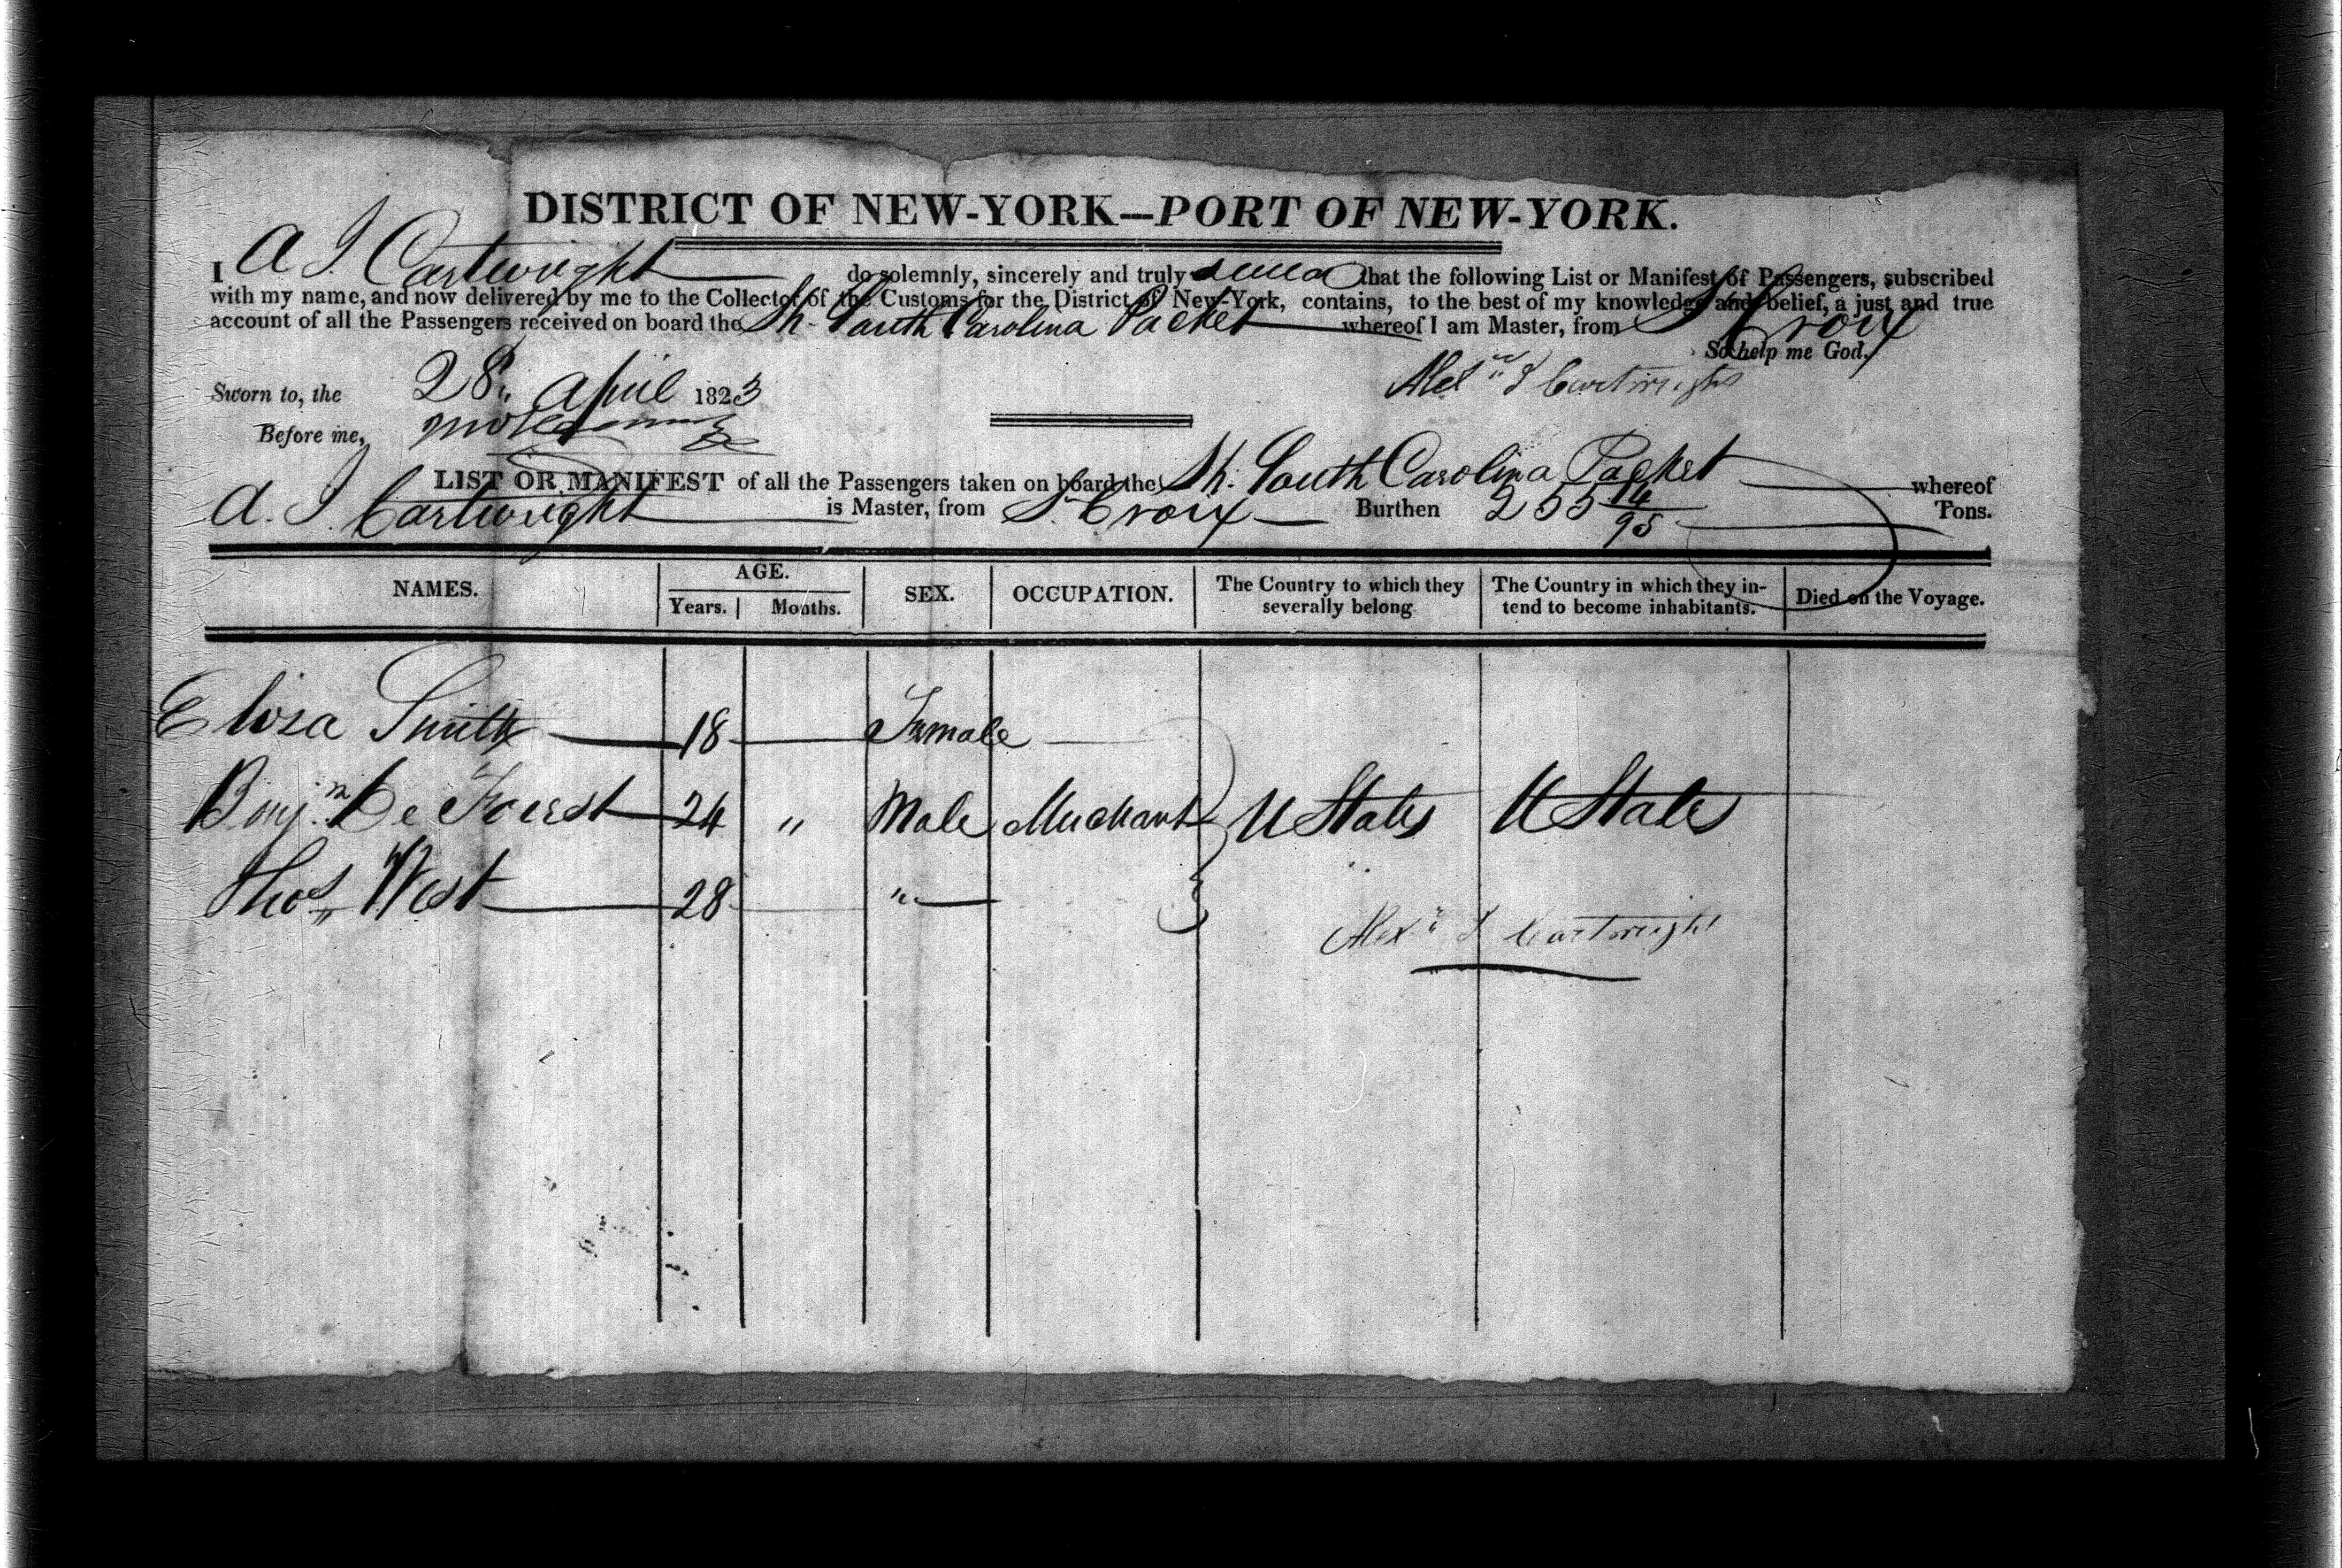 DISTRICT OF NEW-YORK—PORT OF NEW-YORK.
I A J. Cartwright do solemnly, sincerely and truly that the following List or Manifest of Passengers, subscribed
with my name, and now delivered by me to the Collector of the Customs for the District of New-York, contains, to the best of my knowledge and belief, a just and true
account of all the Passengers received on board the Sh. South Carolina Packet whereof I am Master, from St Croix
So help me God.
Sworn to, the 28, April 1823
Alexr J Cartwright
Before me,
LIST OR MANIFEST of all the Passengers taken on board the Sh. South Carolina Packet whereof
A. J. Cartwright is Master, from St Croix Burthen 255 14/95 Tons.
NAMES. AGE. Years. Months. SEX. OCCUPATION. The Country to which they severally belong The Country in which they intend to become inhabitants. Died on the Voyage.
Eliza Smith 18 Female
Benjn De Forest 24 " Male Merchant U States U States
Thos West 28 "
Alexr J Cartwright